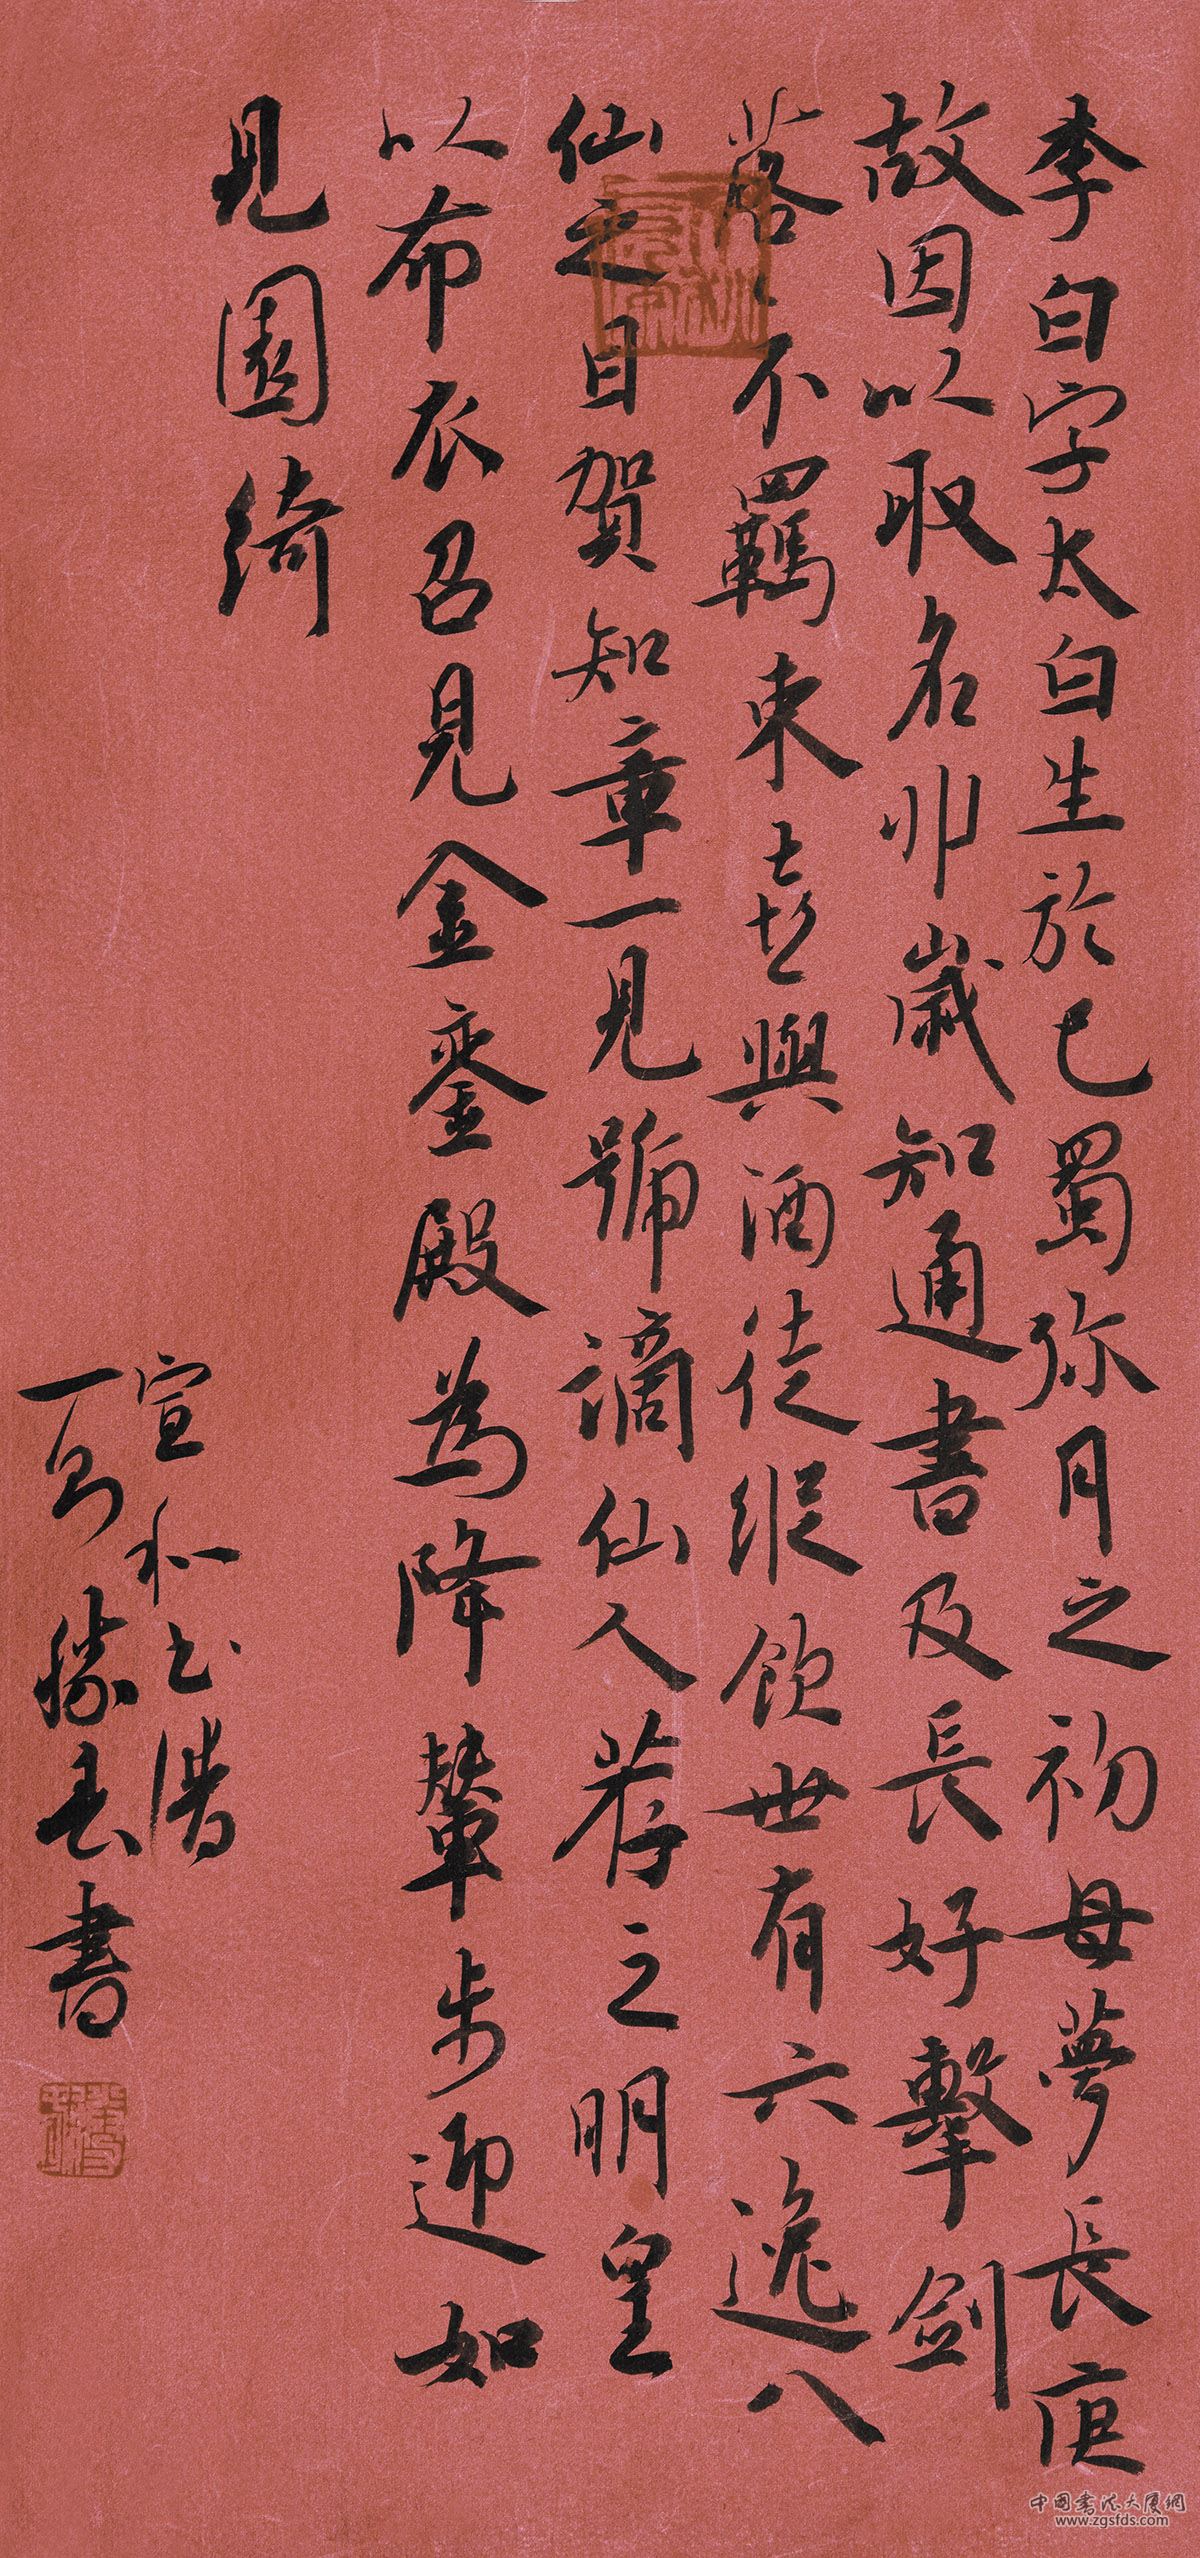 李白字太白生於巴蜀弥月之初母夢長庚
故因以取名丱歲知通書及長好擊劍
落々不羈束喜與酒徒縱飲世有六逸八
仙之目賀知章一見號謫仙人荐之明皇
以布衣召見金鑾殿為降輦步迎如
見園綺
宣和书谱
丁酉勝春書
中国书法大厦網
www.zgsfds.com